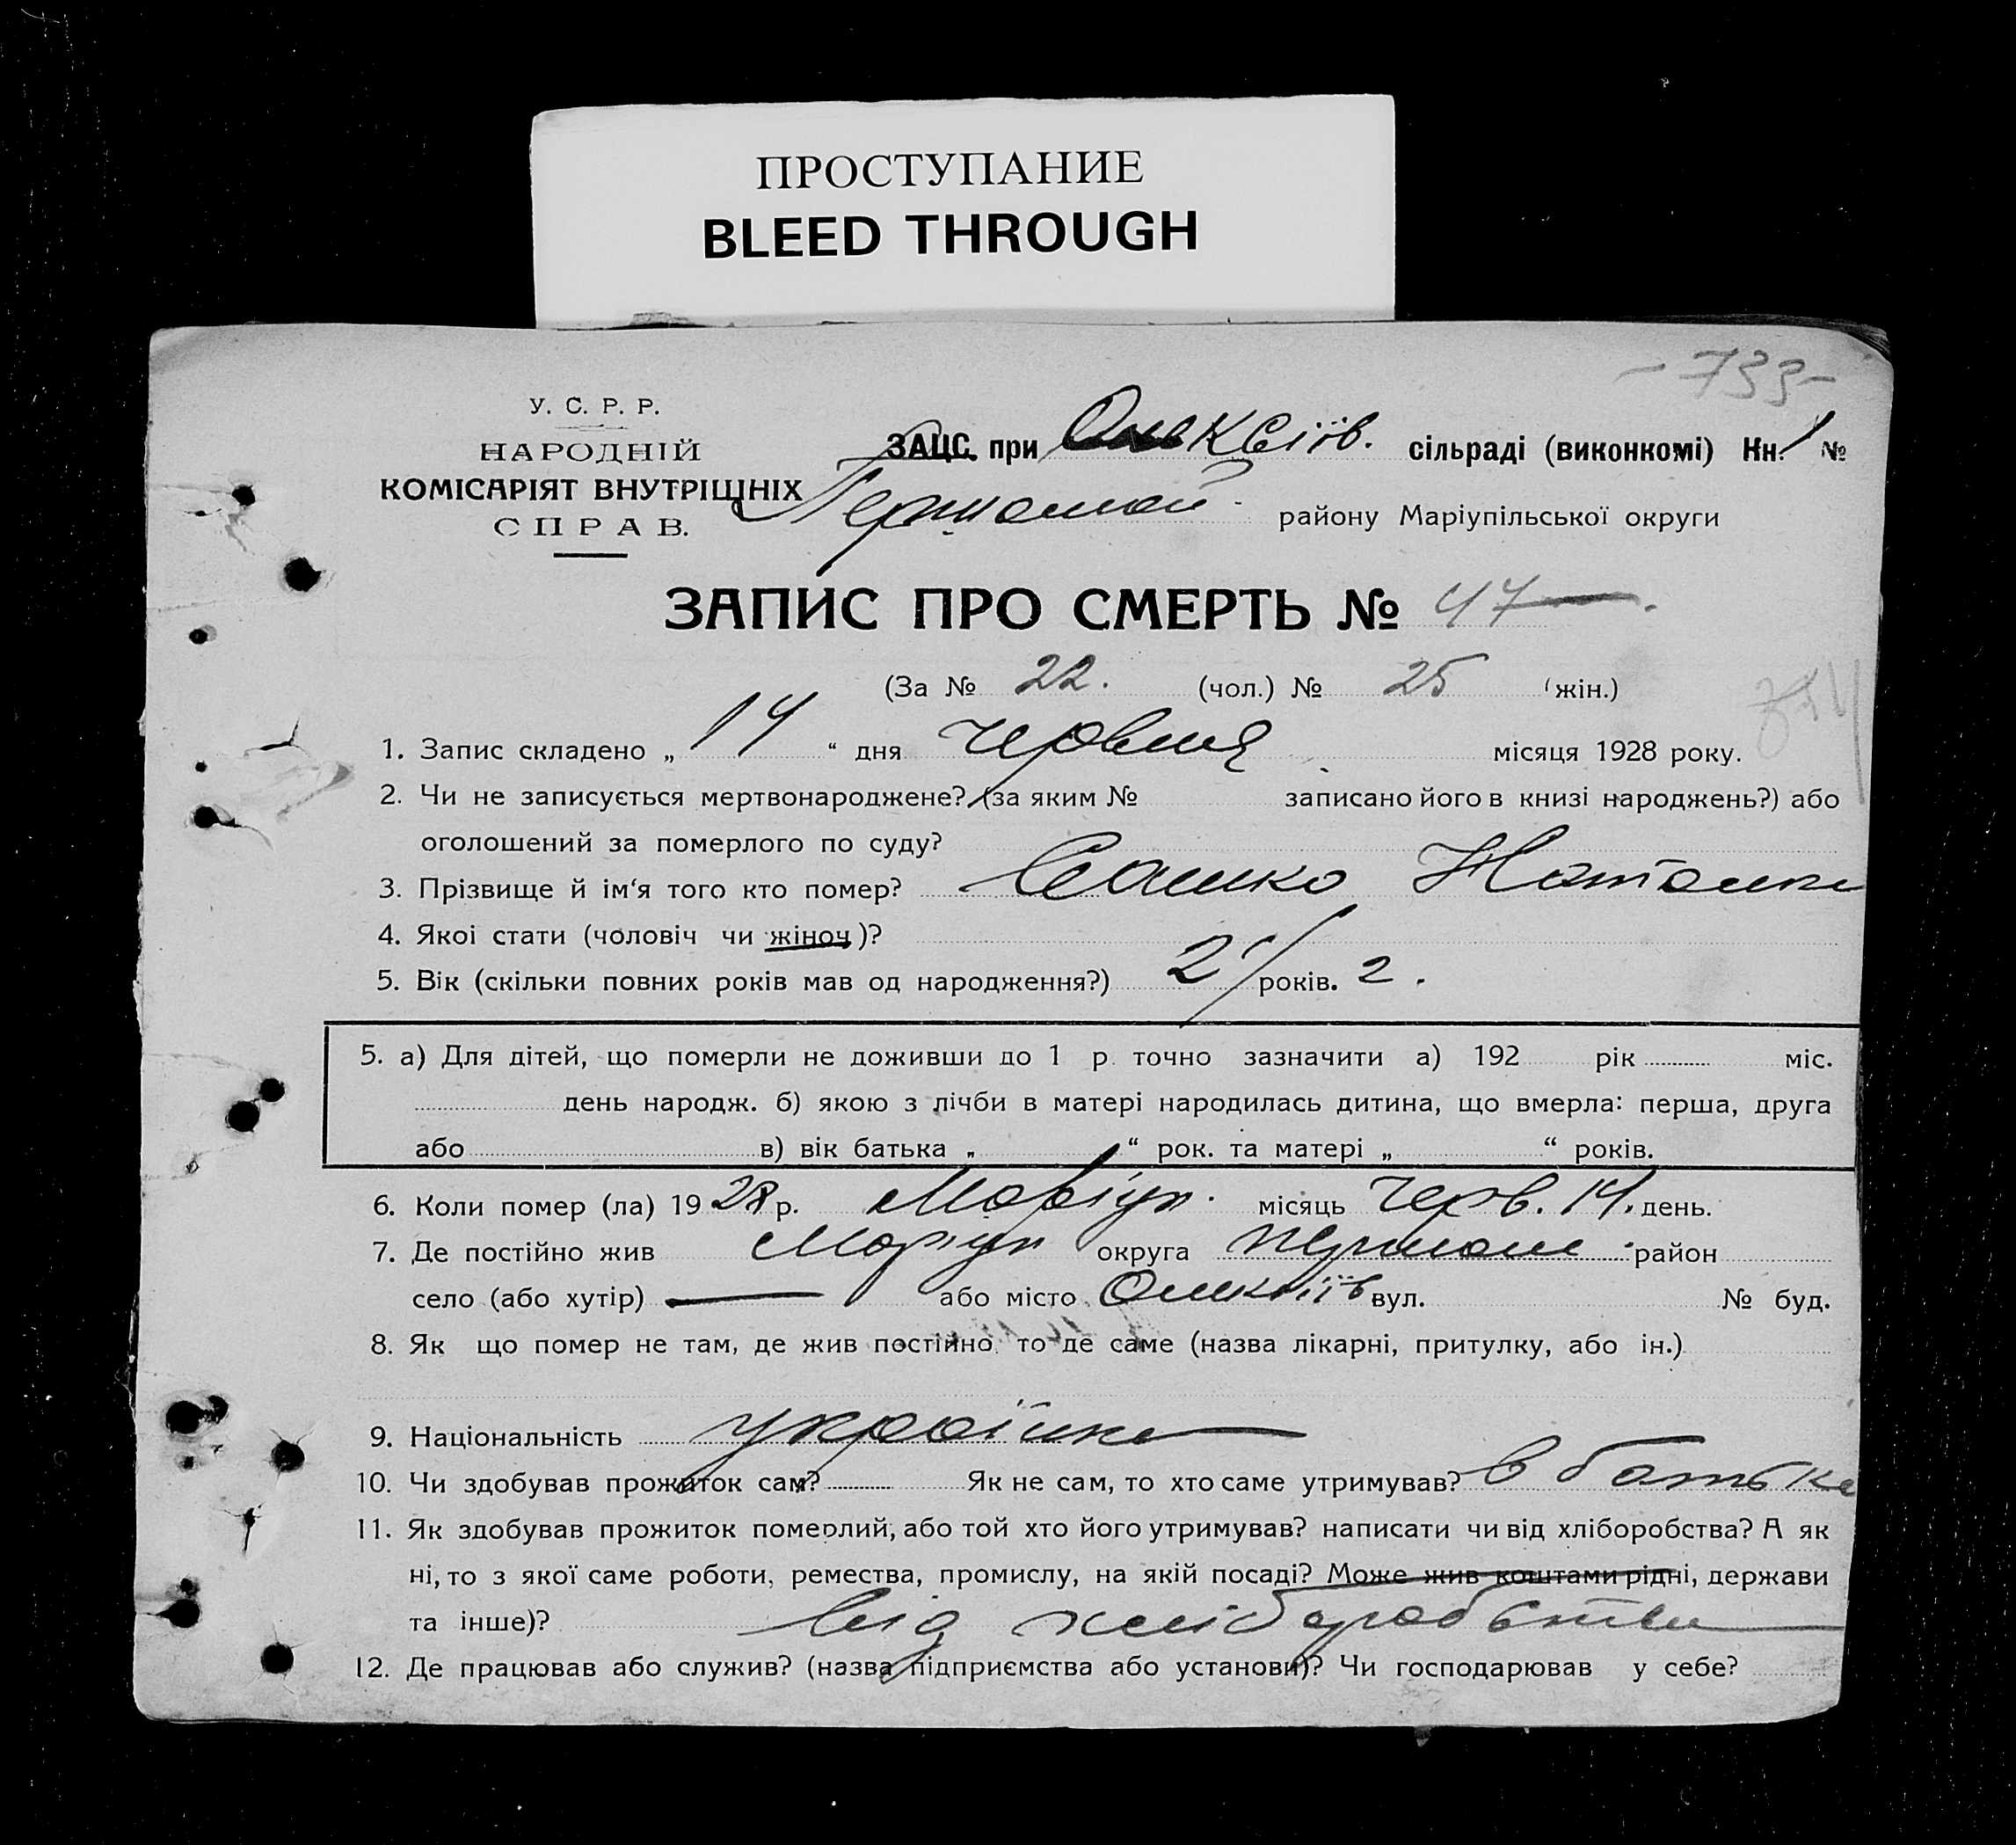 ПРОСТУПАНИЕ
BLEED THROUGH
- 733 -
У. С. Р. Р.
НАРОДНІЙ
КОМІСАРІЯТ ВНУТРІШНІХ
СПРАВ.
ЗАЦС. при Олексіїв. сільраді (виконкомі) Кн. 1 №
Першомай. району Маріупільської округи
ЗАПИС ПРО СМЕРТЬ № 47
(За № 22. (чол.) № 25 (жін.)
1. Запис складено „ 14 “ дня червня місяця 1928 року.
2. Чи не записується мертвонароджене? (за яким № записано його в книзі народжень?) або
оголошений за померлого по суду?
3. Прізвище й ім‘я того кто помер? Сашко Наталка
4. Якоі стати (чоловіч чи жіноч)?
5. Вік (скільки повних років мав од народження?) 2 років. 2.
5. а) Для дітей, що померли не доживши до 1 р. точно зазначити а) 192 рік міс.
день народж. б) якою з лічби в матері народилась дитина, що вмерла: перша, друга
або в) вік батька „ “ рок. та матері „ “ років.
6. Коли помер (ла) 19 28 р. Маріуп. місяць черв. 14. день.
7. Де постійно жив Маріуп округа Першом район
село (або хутір) — або місто Олексіїв вул. № буд.
8. Як що помер не там, де жив постійно, то де саме (назва лікарні, притулку, або ін.)
9. Національність українка
10. Чи здобував прожиток сам? Як не сам, то хто саме утримував? в батька
11. Як здобував прожиток померлий, або той хто його утримував? написати чи від хліборобства? А як
ні, то з якої саме роботи, ремества, промислу, на якій посаді? Може жив коштами рідні, держави
та інше)? від хліборобства
12. Де працював або служив? (назва підприємства або установи)? Чи господарював у себе?